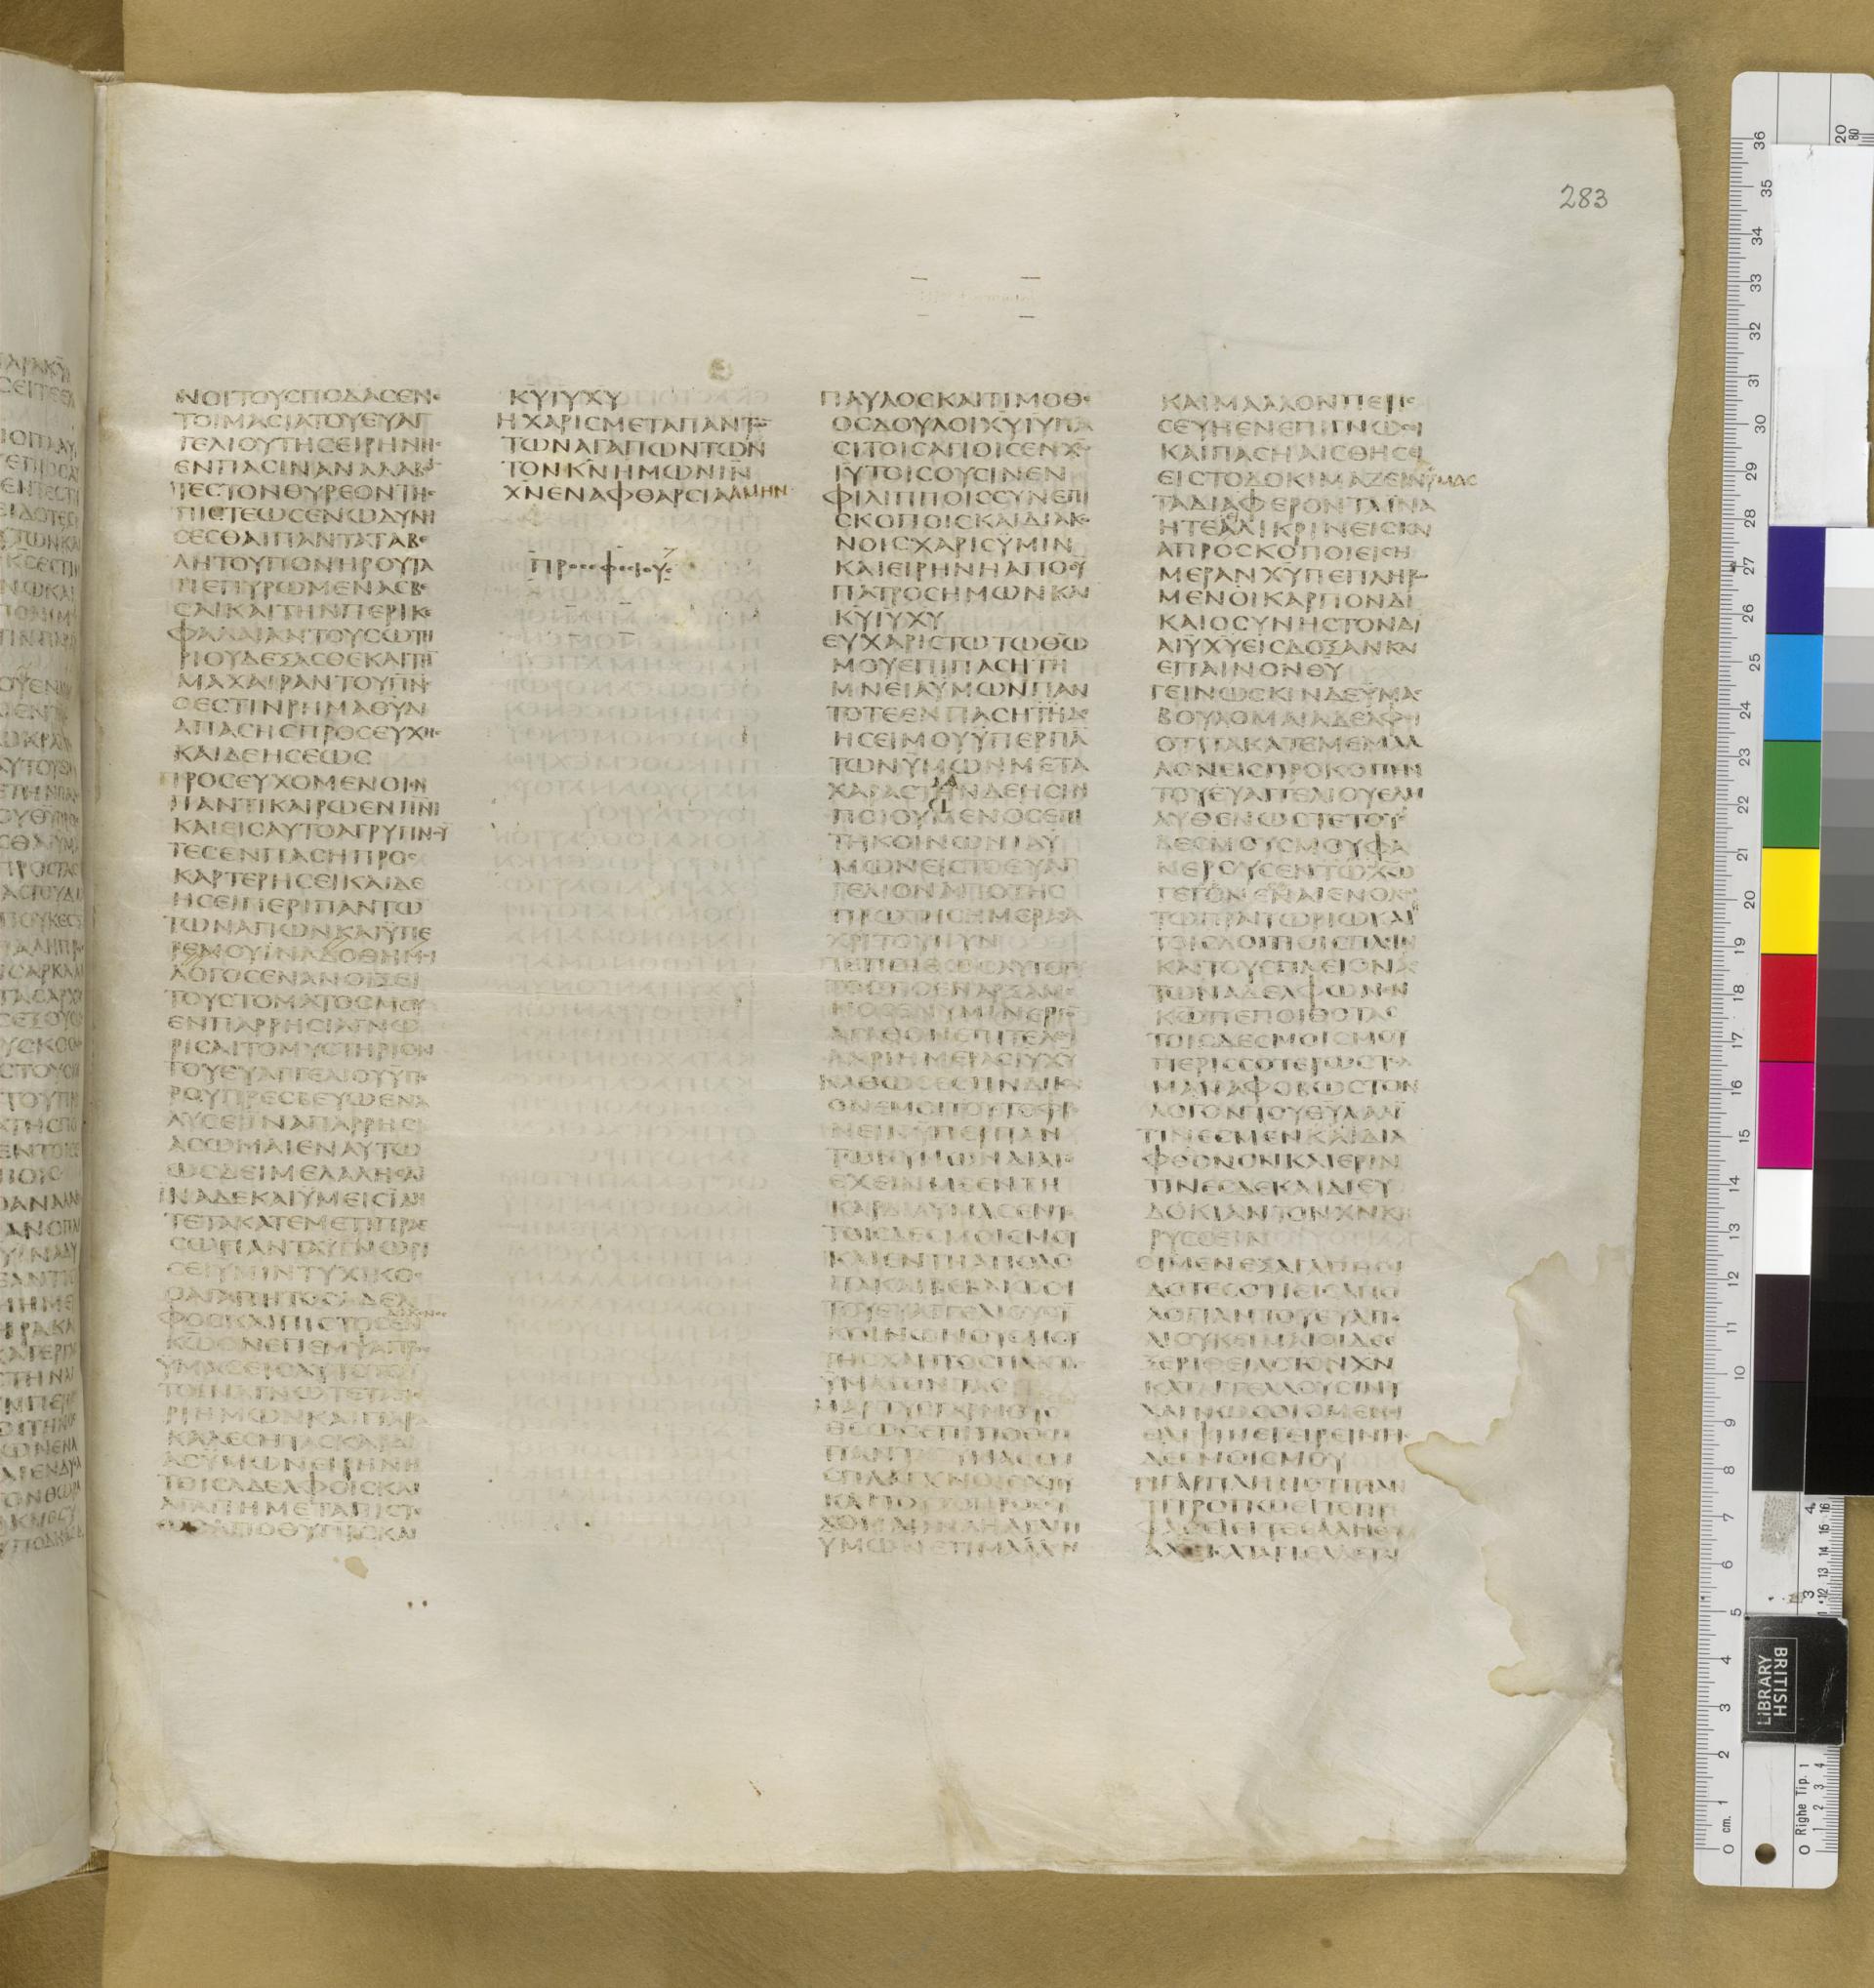 283
ΝΟΙΤΟΥϹΠΟΔΑϹΕΝ
ΤΟΙΜΑϹΙΑΤΟΥΕΥΑΓ
ΓΕΛΙΟΥΤΗϹΕΙΡΗΝΗ
ΕΝΠΑϹΙΝΑΝΑΛΑΒ
ΤΕϹΤΟΝΘΥΡΕΟΝΤΗ
ΠΙϹΤΕΩϹΕΝΩΔΥΝΗ
ϹΕϹΘΑΙΠΑΝΤΑΤΑΒΕ
ΛΗΤΟΥΠΟΝΗΡΟΥΤΑ
ΠΕΠΥΡΩΜΕΝΑϹΒΕ
ϹΑΙΚΑΙΤΗΝΠΕΡΙΚΕ
ΦΑΛΑΙΑΝΤΟΥϹΩΤΗ
ΡΙΟΥΔΕΞΑϹΘΕΚΑΙΤΗ
ΜΑΧΑΙΡΑΝΤΟΥΠΝϹ
ΟΕϹΤΙΝΡΗΜΑΘΥΔΙ
ΑΠΑϹΗϹΠΡΟϹΕΥΧΗϹ
ΚΑΙΔΕΗϹΕΩϹ
ΠΡΟϹΕΥΧΟΜΕΝΟΙΕΝ
ΠΑΝΤΙΚΑΙΡΩΕΝΠΝΙ
ΚΑΙΕΙϹΑΥΤΟΑΓΡΥΠΝΟΥ
ΤΕϹΕΝΠΑϹΗΠΡΟϹ
ΚΑΡΤΕΡΗϹΕΙΚΑΙΔΕ
ΗϹΕΙΠΕΡΙΠΑΝΤΩ
ΤΩΝΑΓΙΩΝΚΑΙΫΠΕ
ΡΕΜΟΥΪΝΑΔΟΘΗΜΟΙ
ΛΟΓΟϹΕΝΑΝΟΙΞΕΙ
ΤΟΥϹΤΟΜΑΤΟϹΜΟΥ
ΕΝΠΑΡΡΗϹΙΑΓΝΩ
ΡΙϹΑΙΤΟΜΥϹΤΗΡΙΟΝ
ΤΟΥΕΥΑΓΓΕΛΙΟΥΫΠΕ
ΡΟΥΠΡΕϹΒΕΥΩΕΝΑ
ΛΥϹΕΙΪΝΑΠΑΡΡΗϹΙ
ΑϹΩΜΑΙΕΝΑΥΤΩ
ΩϹΔΕΙΜΕΛΑΛΗϹΑΙ
ΪΝΑΔΕΚΑΙΫΜΕΙϹΪΔΗ
ΤΕΤΑΚΑΤΕΜΕΤΙΠΡΑϹ
ϹΩΠΑΝΤΑΓΝΩΡΙ
ϹΕΙΥΜΙΝΤΥΧΙΚΟϹ
ΟΑΓΑΠΗΤΟϹΑΔΕΛ
ΦΟϹΚΑΙΠΙϹΤΟϹΕΝ
ΔΙΑΚΟΝΟϹ
ΚΩΟΝΕΠΕΜΨΑΠΡΟϹ
ΫΜΑϹΕΙϹΑΥΤΟΤΟΥ
ΤΟΪΝΑΓΝΩΤΕΤΑΠΕ
ΡΙΗΜΩΝΚΑΙΠΑΡΑ
ΚΑΛΕϹΗΤΑϹΚΑΡΔΙ
ΑϹΥΜΩΝΕΙΡΗΝΗ
ΤΟΙϹΑΔΕΛΦΟΙϹΚΑΙ
ΑΓΑΠΗΜΕΤΑΠΙϹΤΕ
ΩϹΑΠΟΘΥΠΡϹΚΑΙ
ΚΥΙΥΧΥ
ΗΧΑΡΙϹΜΕΤΑΠΑΝΤΩ
ΤΩΝΑΓΑΠΩΝΤΩΝ
ΤΟΝΚΝΗΜΩΝΙΝ
ΧΝΕΝΑΦΘΑΡϹΙΑΑΜΗΝ
ΠΡΟϹΕΦΕϹΙΟΥϹ
ΠΑΥΛΟϹΚΑΙΤΙΜΟΘΕ
ΟϹΔΟΥΛΟΙΧΥΙΥΠΑ
ϹΙΤΟΙϹΑΓΙΟΙϹΕΝΧΩ
ΙΥΤΟΙϹΟΥϹΙΝΕΝ
ΦΙΛΙΠΠΟΙϹϹΥΝΕΠΙ
ϹΚΟΠΟΙϹΚΑΙΔΙΑΚΟ
ΝΟΙϹΧΑΡΙϹΫΜΙΝ
ΚΑΙΕΙΡΗΝΗΑΠΟΘΥ
ΠΑΤΡΟϹΗΜΩΝΚΑΙ
ΚΥΙΥΧΥ
ΕΥΧΑΡΙϹΤΩΤΩΘΩ
ΜΟΥΕΠΙΠΑϹΗΤΗ
ΜΝΕΙΑΥΜΩΝΠΑΝ
ΤΟΤΕΕΝΠΑϹΗΤΗΔΕ
ΗϹΕΙΜΟΥΫΠΕΡΠΑ
ΤΩΝΫΜΩΝΜΕΤΑ
ΧΑΡΑϹΤΗΝΔΕΗϹΙΝ
ΠΟΙΟΥΜΕΝΟϹΕΠΙ
ΤΗΚΟΙΝΩΝΙΑΫ
ΜΩΝΕΙϹΤΟΕΥΑΓ
ΓΕΛΙΟΝΑΠΟΤΗϹ
ΠΡΩΤΗϹΗΜΕΡΑϹΑ
ΧΡΙΤΟΥΝΥΝ
ΠΕΠΟΙΘΩϹΑΥΤΟΤΟΥ
ΤΟΟΤΙΟΕΝΑΡΞΑΜΕ
ΝΟϹΕΝΥΜΙΝΕΡΓΟ
ΑΓΑΘΟΝΕΠΙΤΕΛΕϹΙ
ΑΧΡΙΗΜΕΡΑϹΙΥΧΥ
ΚΑΘΩϹΕϹΤΙΝΔΙΚΑΙ
ΟΝΕΜΟΙΤΟΥΤΟΦΡΟ
ΝΕΙΝΫΠΕΡΠΑΝ
ΤΩΝΫΜΩΝΔΙΑΤΟ
ΕΧΕΙΝΜΕΕΝΤΗ
ΚΑΡΔΙΑΥΜΑϹΕΝΤΕ
ΤΟΙϹΔΕϹΜΟΙϹΜΟΥ
ΚΑΙΕΝΤΗΑΠΟΛΟ
ΓΙΑΚΑΙΒΕΒΑΙΩϹΙ
ΤΟΥΕΥΑΓΓΕΛΙΟΥϹΥ
ΚΟΙΝΩΝΟΥϹΜΟΥ
ΤΗϹΧΑΡΙΤΟϹΠΑΝΤΑϹ
ΫΜΑϹΟΝΤΑϹ
ΜΑΡΤΥϹΓΑΡΜΟΥΟ
ΘΕΩϹΕΠΙΠΟΘΩ
ΠΑΝΤΑϹΥΜΑϹΕΝ
ϹΠΛΑΓΧΝΟΙϹΧΥΙΥ
ΚΑΙΤΟΥΤΟΠΡΟϹΕΥ
ΧΟΜΑΙΙΝΑΗΑΓΑΠΗ
ΫΜΩΝΕΤΙΜΑΛΛΟΝ
ΚΑΙΜΑΛΛΟΝΠΕΡΙϹ
ϹΕΥΗΕΝΕΠΙΓΝΩϹΙ
ΚΑΙΠΑϹΗΑΙϹΘΗϹΕΙ
ΕΙϹΤΟΔΟΚΙΜΑΖΕΙΝΫΜΑϹ
ΤΑΔΙΑΦΕΡΟΝΤΑΪΝΑ
ΗΤΕΑΛΙΚΡΙΝΕΙϹΚΑΙ
ΑΠΡΟϹΚΟΠΟΙΕΙϹΗ
ΜΕΡΑΝΧΥΠΕΠΛΗΡΩ
ΜΕΝΟΙΚΑΡΠΟΝΔΙ
ΚΑΙΟϹΥΝΗϹΤΟΝΔΙ
ΑΙΥΧΥΕΙϹΔΟΞΑΝΚΑΙ
ΕΠΑΙΝΟΝΘΥ
ΓΕΙΝΩϹΚΙΝΔΕΫΜΑϹ
ΒΟΥΛΟΜΑΙΑΔΕΛΦΟΙ
ΟΤΙΤΑΚΑΤΕΜΕΜΑΛ
ΛΟΝΕΙϹΠΡΟΚΟΠΗΝ
ΤΟΥΕΥΑΓΓΕΛΙΟΥΕΛΗ
ΛΥΘΕΝΩϹΤΕΤΟΥϹ
ΔΕϹΜΟΥϹΜΟΥΦΑ
ΝΕΡΟΥϹΕΝΤΩΧΩ
ΓΕΓΟΝΕΝΑΙΕΝΟΛΩ
ΤΩΠΡΑΙΤΩΡΙΩΚΑΙ
ΤΟΙϹΛΟΙΠΟΙϹΠΑϹΙΝ
ΚΑΙΤΟΥϹΠΛΕΙΟΝΑϹ
ΤΩΝΑΔΕΛΦΩΝΕΝ
ΚΩΠΕΠΟΙΘΟΤΑϹ
ΤΟΙϹΔΕϹΜΟΙϹΜΟΥ
ΠΕΡΙϹϹΟΤΕΡΩϹΤΟΛ
ΜΑΝΑΦΟΒΩϹΤΟΝ
ΛΟΓΟΝΤΟΥΘΥΛΑΛΙ
ΤΙΝΕϹΜΕΝΚΑΙΔΙΑ
ΦΘΟΝΟΝΚΑΙΕΡΙΝ
ΤΙΝΕϹΔΕΚΑΙΔΙΕΥ
ΔΟΚΙΑΝΤΟΝΧΝΚΗ
ΡΥϹϹΕΙΝ
ΟΙΜΕΝΕΞΑΓΑΠΗϹΕΙ
ΔΟΤΕϹΟΤΙΕΙϹΑΠΟ
ΛΟΓΙΑΝΤΟΥΕΥΑΓΓΕ
ΛΙΟΥΚΕΙΜΑΙΟΙΔΕΕ
ΞΕΡΙΘΕΙΑϹΤΟΝΧΝ
ΚΑΤΑΓΓΕΛΛΟΥϹΙΝΟΥ
ΧΑΓΝΩϹΟΙΟΜΕΝΟΙ
ΘΛΙΨΙΝΕΓΕΙΡΕΙΝΤΟΙϹ
ΔΕϹΜΟΙϹΜΟΥ
ΤΙΓΑΡΠΛΗΝΟΤΙΠΑΝ
ΤΙΤΡΟΠΩΕΙΤΕΠΡΟ
ΦΑϹΕΙΕΙΤΕΑΛΗΘΕΙ